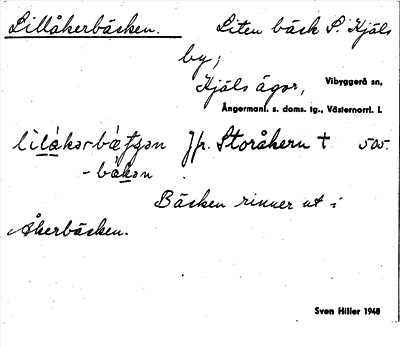 Lillåkerbäcken. Liten bäck S. Kjäls
by,
Kjäls ägor, Vibyggerå sn,
Ångermanl. s. doms. tg., Västernorrl. L
Jfr. Storåkern + 505.
Bäcken rinner ut i
Åkerbäcken.
Sven Hiller 1948